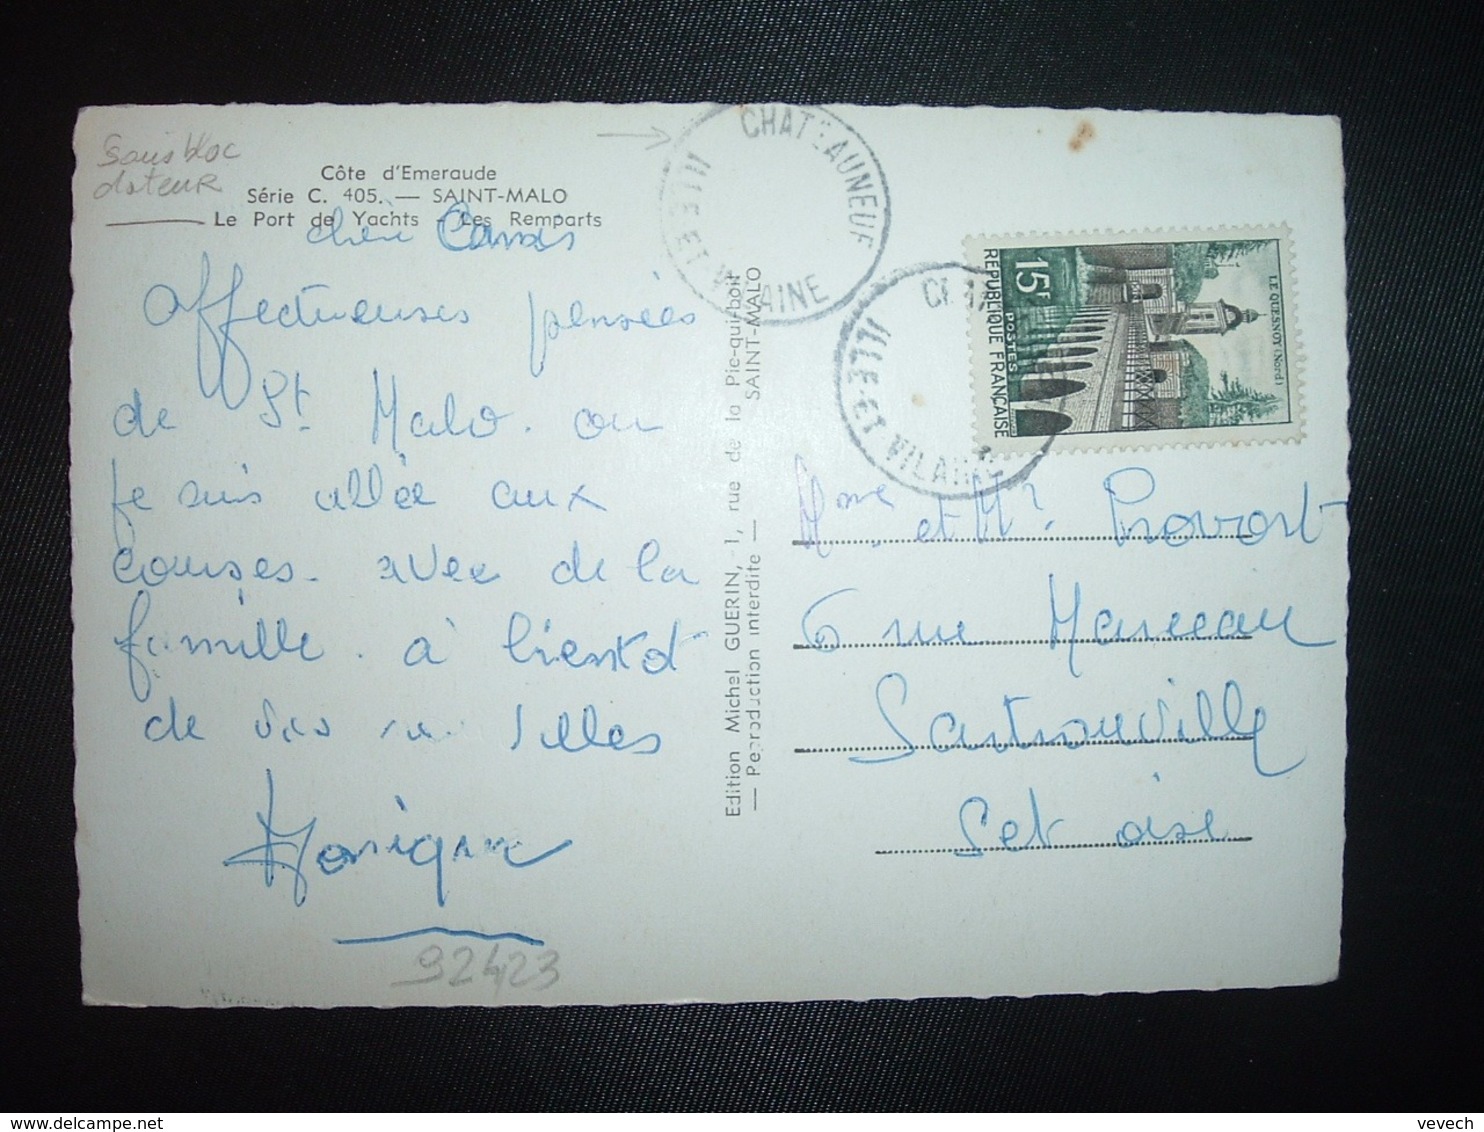 Sans bloc
dateur
Côte d'Emeraude
Série C. 405. — SAINT-MALO
Le Port de Yachts - Les Remparts
Affectueuses pensées
de St Malo. ou
je suis allée aux
courses. avec de la
famille. à bientot
de vos nouvelles
Monique
92423
Edition Michel GUERIN, 1, rue de la Pie-qui-boit
— Reproduction interdite — SAINT-MALO
CHATEAUNEUF
ILLE-ET-VILAINE
ILLE-ET-VILAINE
15F
POSTES
REPUBLIQUE FRANÇAISE
LE QUESNOY (Nord)
Mme et Mr. Provost
6 rue Marceau
Sartrouville
Set oise
delcampe.net
vevech